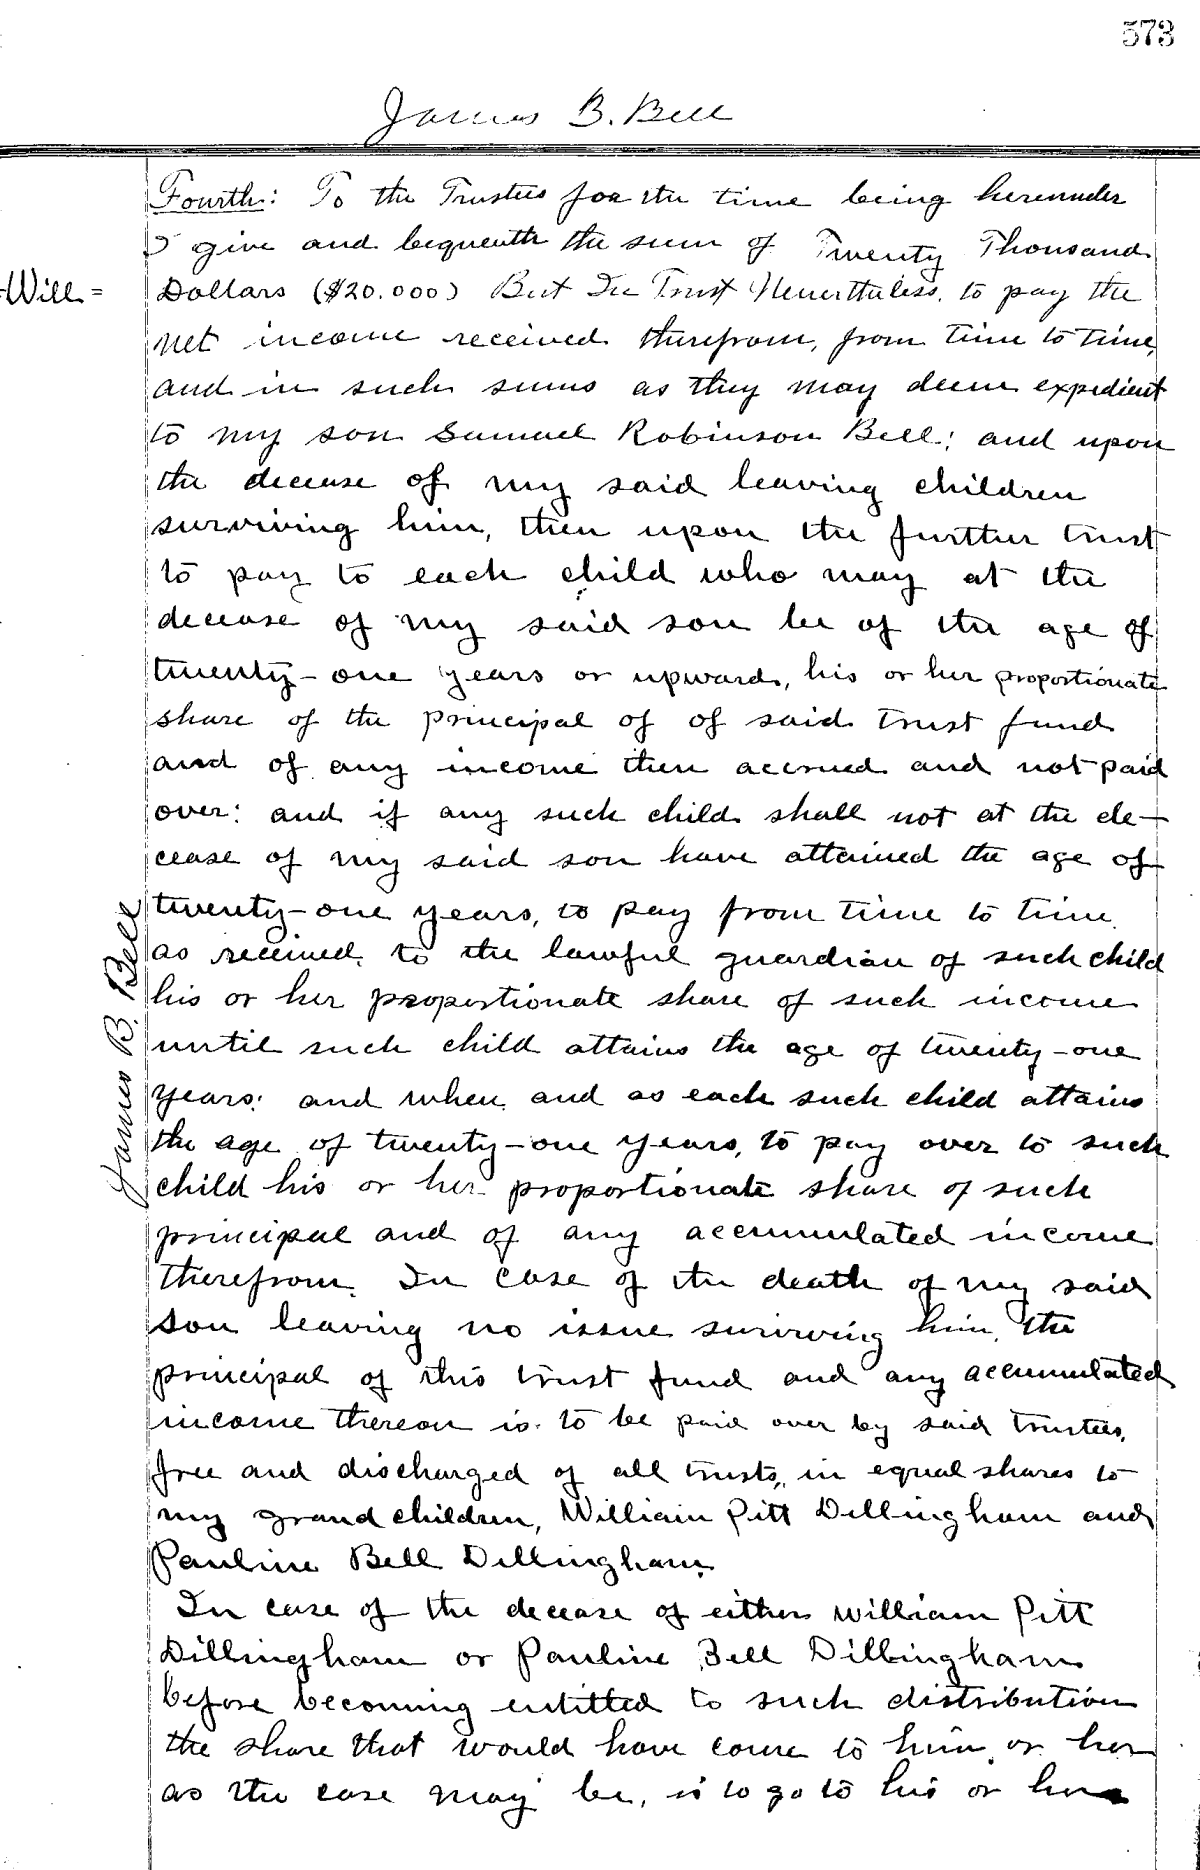 573
James B. Bell
Fourth: To the Trustees for the time being hereunder
I give and bequeath the sum of Twenty Thousand
-Will=
Dollars ($20.000) But In Trust Nevertheless, to pay the
net income received therefrom, from time to time,
and in such sums as they may deem expedient
to my son Samuel Robinson Bell; and upon
the decease of my said leaving children
surviving him, then upon the further trust
to pay to each child who may at the
decease of my said son be of the age of
twenty-one years or upward, his or her proportionate
share of the principal of of said trust fund
and of any income then accrued and not paid
over: and if any such child shall not at the de-
cease of my said son have attained the age of
twenty-one years, to pay from time to time
as received, to the lawful guardian of such child
his or her proportionate share of such income
until such child attains the age of twenty-one
years: and when and as each such child attains
the age of twenty-one years, to pay over to such
child his or her proportionate share of such
principal and of any accumulated income
therefrom. In case of the death of my said
son leaving no issue surviving him, the
principal of this trust fund and any accumulated
income thereon is to be paid over by said trustees,
free and discharged of all trusts, in equal shares to
my grand children, William Pitt Dillingham and
Pauline Bell Dillingham.
In case of the decease of either William Pitt
Dillingham or Pauline Bell Dillingham
before becoming entitled to such distribution
the share that would have come to him or her
as the case may be, is to go to his or her
James B. Bell